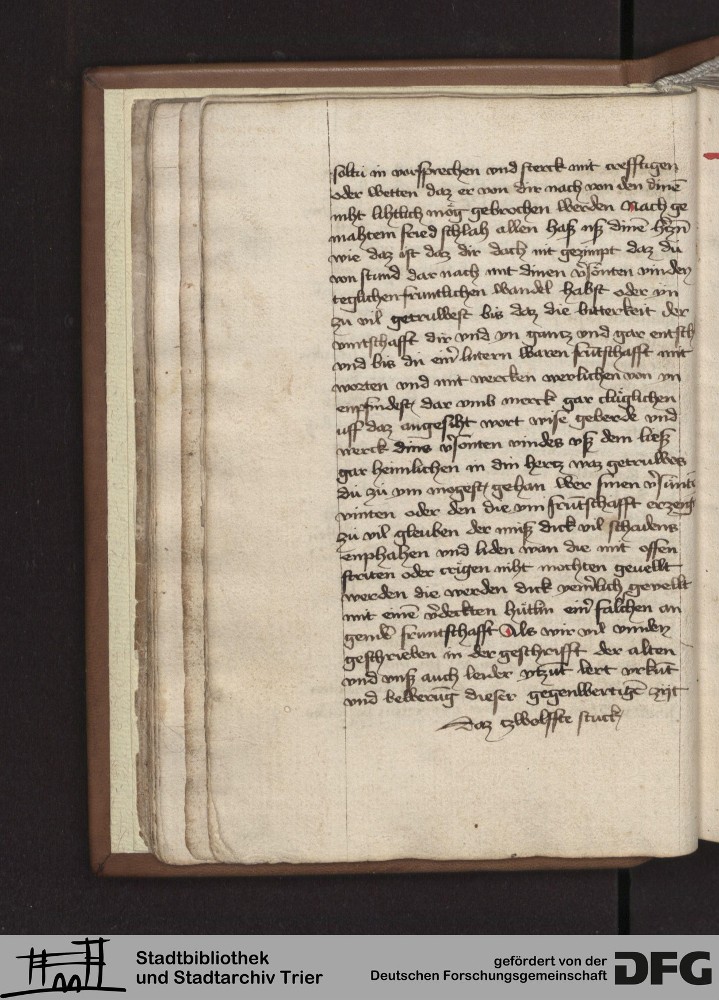 soltu in vorsprechen vnd sterck mit crefftigen
oder wetten daz er von dir nach von den dinē
niht lihtlich mög gebrochen werden Nach ge
mahtem fried schlah allen haß uß dinē
wie daz ist daz dir doch nit gezimpt daz du
von stund dar nach mit dinen v̓sonten vinden
teglichen fruntlichen wandel habst oder im
zu vil getruwest bis daz die bitterkeit der
vintschafft dir vnd ym gantz vnd gar entsch
vnd bis du ein̓ lutern waren frūtschafft mit
worten vnd mit wercken werlichen von ym
enpfindest dar vmb merck gar clüglichen
uff daz angesiht wort wise geberde vnd
werck dins v̓sonten vindes uß dem ließ
gar heimlichen in din hertz waz getruwes
du zu ym mogest gehan wer sinen v̓sunten
vinten oder den die ym frūtschafft erzeig
zu vil gleuben der muß dick vil schadens
enphahen vnd liden wan die mit offen
striten oder crigen niht mochten gevellt
werden die werden dick gevellt
mit einē v̓deckten hütlin ein̓ falschen an
gendē fruntschafft Als wir vil vinden
geschrieben in der geschrifft der alten
vnd vnß auch leider lert vrkūt
vnd bewerūg dieser gegenwertigē zijt
Daz zwolffte stuck
Stadtbibliothek
und Stadtarchiv Trier
gefördert von der
Deutschen Forschungsgemeinschaft
DFG